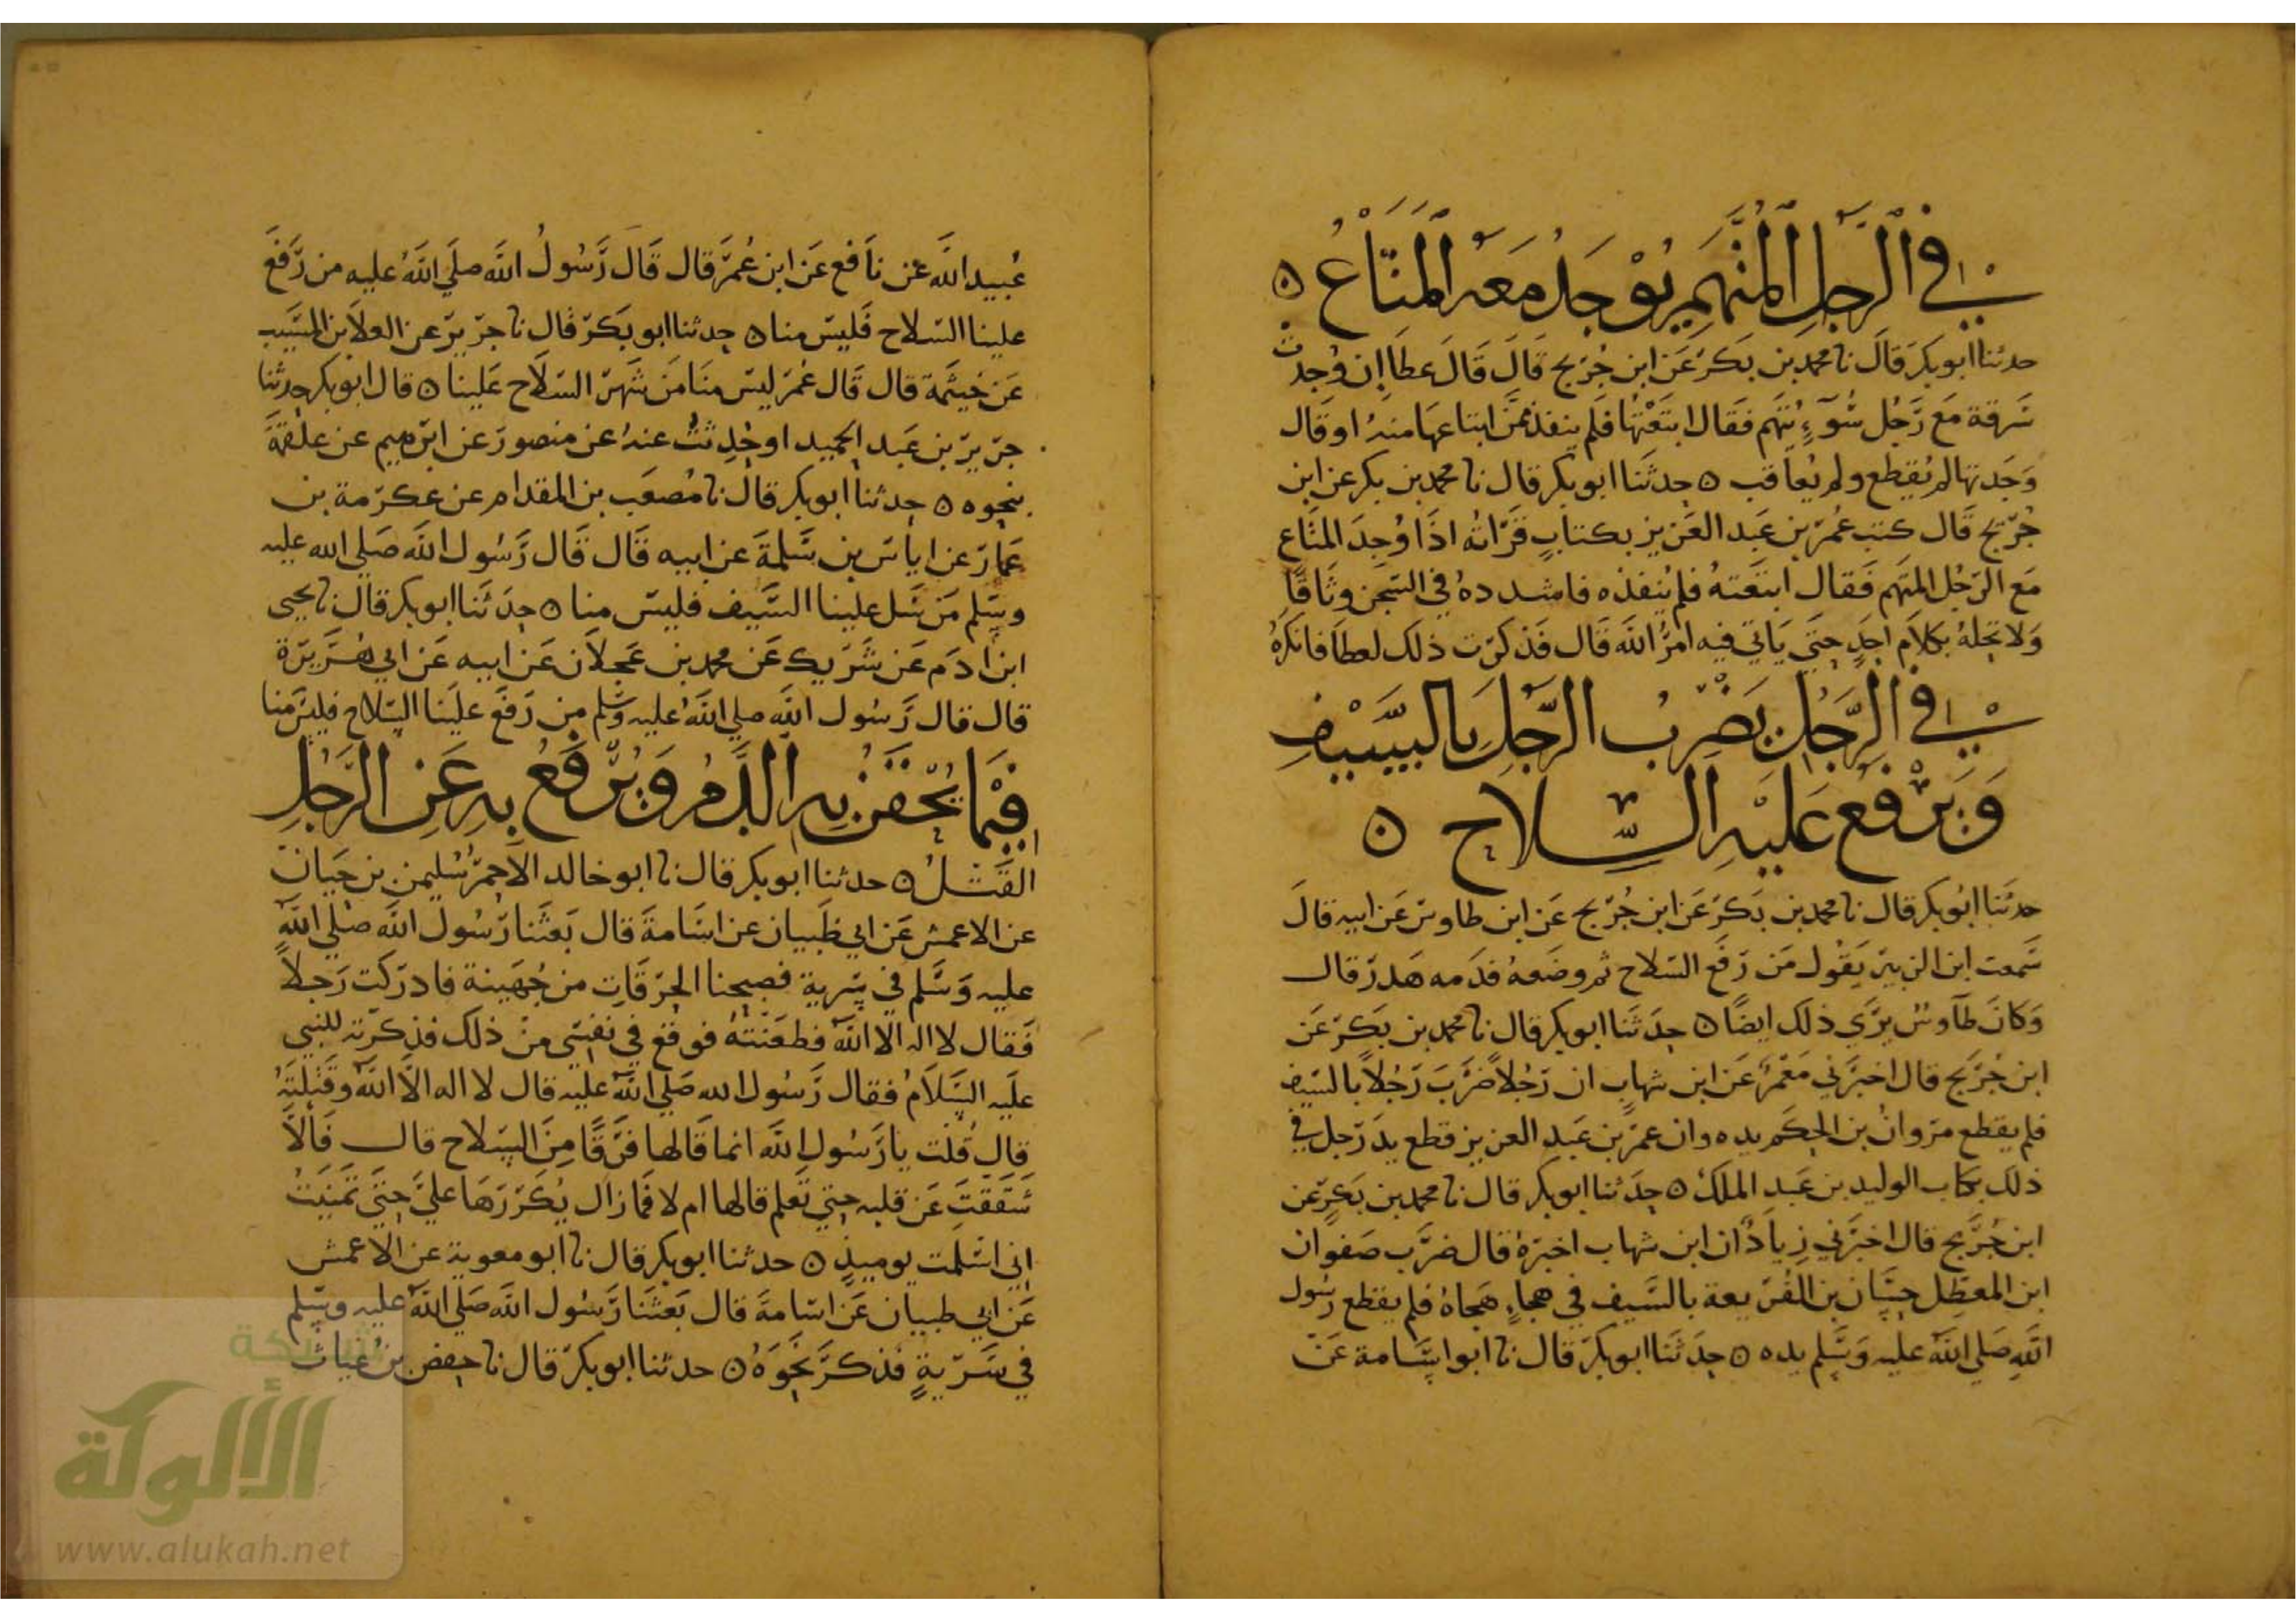 في الرجل المتهم يوجد معه المتاع ۝
حدثنا ابو بكر قال نا محمد بن بكر عن ابن جريج قال قال عطا ان وجدت
سرقة مع رجل سوء يتهم فقال ابتعتها فلم ينفذ ممن ابتاعها منه او قال
وجدتها لم يقطع ولم يعاقب ۝ حدثنا ابو بكر قال نا محمد بن بكر عن ابن
جريج قال كتب عمر بن عبد العزيز بكتاب قراته اذا وجد المتاع
مع الرجل المتهم فقال ابتعته فلم ينفذه فاشدده في السجن وثاقا
ولا تحله بكلام احد حتى ياتي فيه امر الله قال فذكرت ذلك لعطا فانكره
في الرجل يضرب الرجل بالسيف
ويرفع عليه السلاح ۝
حدثنا ابو بكر قال نا محمد بن بكر عن ابن جريج عن ابن طاوس عن ابيه قال
سمعت ابن الزبير يقول من رفع السلاح ثم وضعه فدمه هدر قال
وكان طاوس يرى ذلك ايضا ۝ حدثنا ابو بكر قال نا محمد بن بكر عن
ابن جريج قال اخبرني معمر عن ابن شهاب ان رجلا ضرب رجلا بالسيف
فلم يقطع مروان بن الحكم يده وان عمر بن عبد العزيز قطع يد رجل في
ذلك بكتاب الوليد بن عبد الملك ۝ حدثنا ابو بكر قال نا محمد بن بكر عن
ابن جريج قال اخبرني زياد ان ابن شهاب اخبره قال ضرب صفوان
ابن المعطل حسان بن الفريعة بالسيف في هجاء هجاه فلم يقطع رسول
الله صلى الله عليه وسلم يده ۝ حدثنا ابو بكر قال نا ابو اسامة عن
عبيد الله عن نافع عن ابن عمر قال قال رسول الله صلى الله عليه من رفع
علينا السلاح فليس منا ۝ حدثنا ابو بكر قال نا جرير عن العلا بن المسيب
عن خيثمة قال قال عمر ليس منا من شهر السلاح علينا ۝ قال ابو بكر حدثنا
جرير بن عبد الحميد او حدثت عنه عن منصور عن ابرهيم عن علقمة
بنحوه ۝ حدثنا ابو بكر قال نا مصعب بن المقدام عن عكرمة بن
عمار عن اياس بن سلمة عن ابيه قال قال رسول الله صلى الله عليه
وسلم من سل علينا السيف فليس منا ۝ حدثنا ابو بكر قال نا يحيى
ابن ادم عن شريك عن محمد بن عجلان عن ابيه عن ابي هريرة
قال قال رسول الله صلى الله عليه وسلم من رفع علينا السلاح فليس منا
فيما يحقن به الدم ويرفع به عن الرجل
القتل ۝ حدثنا ابو بكر قال نا ابو خالد الاحمر سليمن بن حيان
عن الاعمش عن ابي ظبيان عن اسامة قال بعثنا رسول الله صلى الله
عليه وسلم في سرية فصبحنا الحرقات من جهينة فادركت رجلا
فقال لا اله الا الله فطعنته فوقع في نفسي من ذلك فذكرته للنبي
عليه السلام فقال رسول الله صلى الله عليه قال لا اله الا الله وقتلته
قال قلت يا رسول الله انما قالها فرقا من السلاح قال فالا
شققت عن قلبه حتى تعلم قالها ام لا فما زال يكررها علي حتى تمنيت
اني اسلمت يوميذ ۝ حدثنا ابو بكر قال نا ابو معوية عن الاعمش
عن ابي ظبيان عن اسامة قال بعثنا رسول الله صلى الله عليه وسلم
في سرية فذكر نحوه ۝ حدثنا ابو بكر قال نا حفص بن غياث
شبكة
الألوكة
www.alukah.net